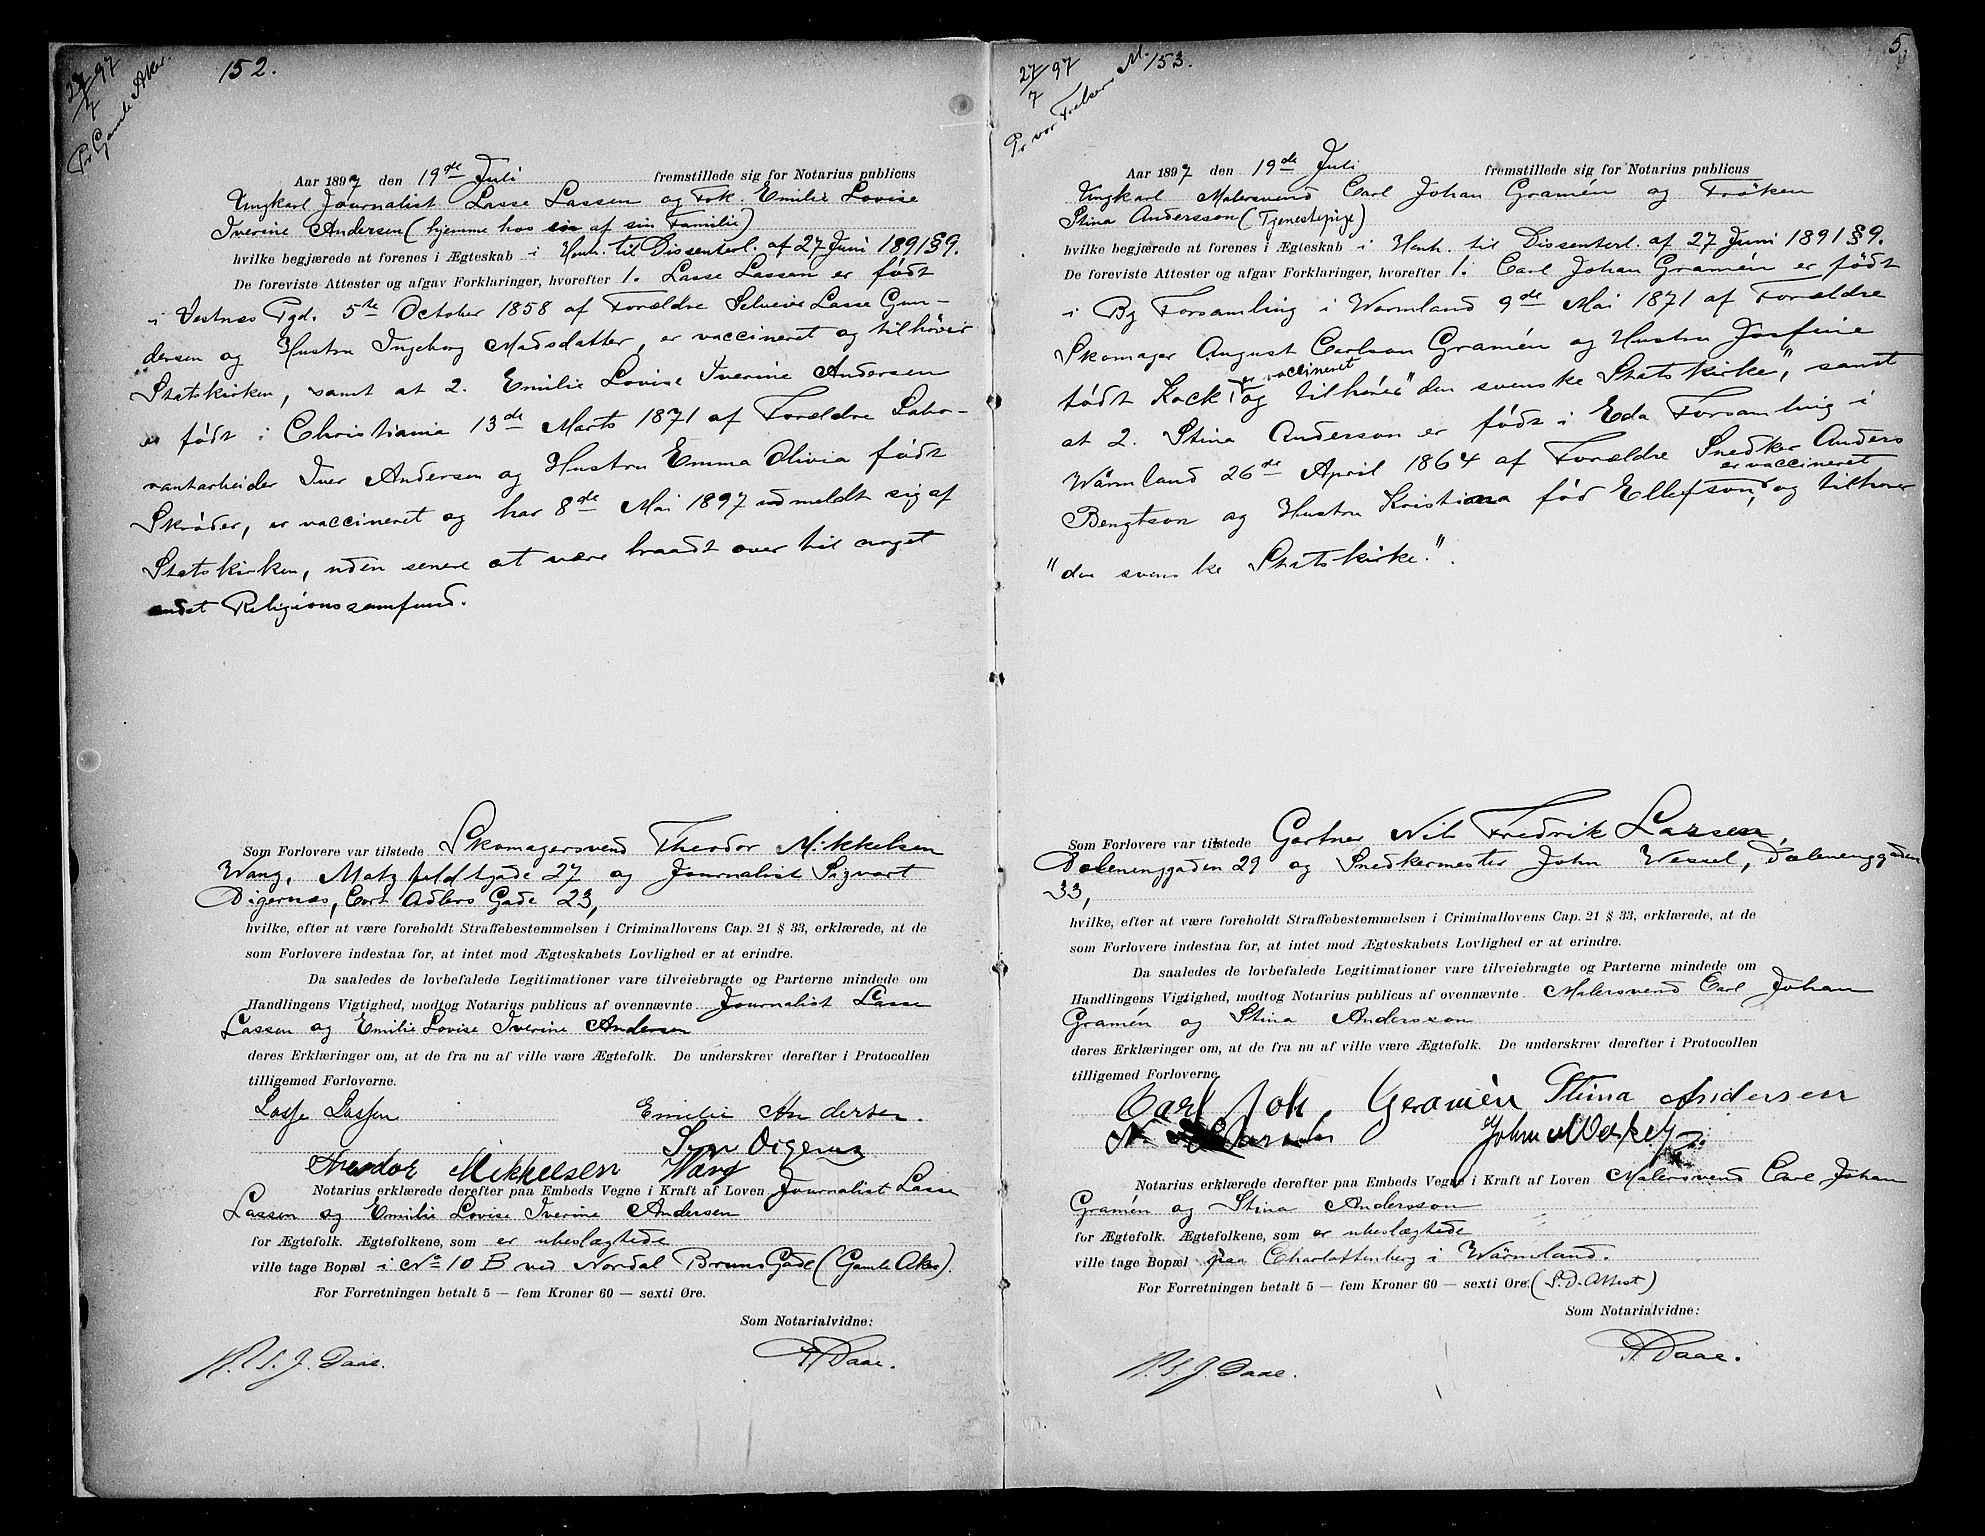 27/7 97
Pr Gamle Aker.
152.
Aar 1897 den 19de Juli fremstillede sig for Notarius publicus
Ungkarl Journalist Lasse Lassen og Frk. Emilie Lovise
Iverine Andersen (hjemme hos sin af sin Familie)
hvilke begjærede at forenes i Ægteskab i Henh. til Dissenterl. af 27 Juni 1891 § 9.
De foreviste Attester og afgav Forklaringer, hvorefter 1. Lasse Lassen er født
i Vestnæs Pgd. 5te October 1858 af Forældre Selveier Lasse Gun-
dersen og Hustru Ingeborg Madsdatter, er vaccineret og tilhører
Statskirken, samt at 2. Emilie Lovise Iverine Andersen
er født i Christiania 13de Marts 1871 af Forældre Labo-
rantarbeider Iver Andersen og Hustru Emma Olivia født
Skrøder, er vaccineret og har 8de Mai 1897 udmeldt sig af
Statskirken, uden senere at være traadt over til noget
andet Religionssamfund.
Som Forlovere var tilstede Skomagersvend Theodor Mikkelsen
Wang, Motzfeldtgade 27 og Journalist Sigvart
Digernæs, Cort Adlers Gade 23,
hvilke, efter at være foreholdt Straffebestemmelsen i Criminallovens Cap. 21 § 33, erklærede, at de
som Forlovere indestaa for, at intet mod Ægteskabets Lovlighed er at erindre.
Da saaledes de lovbefalede Legitimationer vare tilveiebragte og Parterne mindede om
Handlingens Vigtighed, modtog Notarius publicus af ovennævnte Journalist Lasse
Lassen og Emilie Lovise Iverine Andersen
deres Erklæringer om, at de fra nu af ville være Ægtefolk. De underskrev derefter i Protocollen
tilligemed Forloverne.
Lasse Lassen Emilie Andersen.
Digernæs
Theodor Mikkelsen Wang
Notarius erklærede derefter paa Embeds Vegne i Kraft af Loven Journalist Lasse
Lassen og Emilie Lovise Iverine Andersen
for Ægtefolk. Ægtefolkene, som er ubeslægtede
ville tage Bopæl i No 10 B ved Nordal Bruns Gade (Gamle Aker).
For Forretningen betalt 5 — fem Kroner 60 — sexti Øre.
Som Notarialvidne:
J. Daae. Daae.
27/7 97
Pr vor Frelsers M.
153.
5
Aar 1897 den 19de Juli fremstillede sig for Notarius publicus
Ungkarl Malersvend Carl Johan Gramén og Frøken
Stina Andersson (Tjenestepige)
hvilke begjærede at forenes i Ægteskab i Henh. til Dissenterl. af 27 Juni 1891 § 9.
De foreviste Attester og afgav Forklaringer, hvorefter 1. Carl Johan Gramén er født
i By Forsamling i Wärmland 9de Mai 1871 af Forældre
Skomager August Carlson Gramén og Hustru Josfine
født Kock, er vaccineret og tilhører "den svenske Statskirke", samt
at 2. Stina Anderson er født i Eda Forsamling i
Wärmland 26de April 1864 af Forældre Snedker Anders
Bengtson og Hustru Kristina fød Ellefson, er vaccineret og tilhører
"den svenske Statskirke".
Som Forlovere var tilstede Gartner Nils Fredrik Larsen,
Dælenenggaden 29 og Snedkermester John Wessel, Dælenenggaden
33,
hvilke, efter at være foreholdt Straffebestemmelsen i Criminallovens Cap. 21 § 33, erklærede, at de
som Forlovere indestaa for, at intet mod Ægteskabets Lovlighed er at erindre.
Da saaledes de lovbefalede Legitimationer vare tilveiebragte og Parterne mindede om
Handlingens Vigtighed, modtog Notarius publicus af ovennævnte Malersvend Carl Johan
Gramén og Stina Andersson
deres Erklæringer om, at de fra nu af ville være Ægtefolk. De underskrev derefter i Protocollen
tilligemed Forloverne.
Carl Joh. Gramén Stina Andersen
John
Notarius erklærede derefter paa Embeds Vegne i Kraft af Loven Malersvend Carl Johan
Gramén og Stina Andersson
for Ægtefolk. Ægtefolkene, som er ubeslægtede
ville tage Bopæl paa Charlottenberg i Wärmland.
For Forretningen betalt 5 — fem Kroner 60 — sexti Øre. (S.D. Attest)
Som Notarialvidne:
J. Daae. Daae.